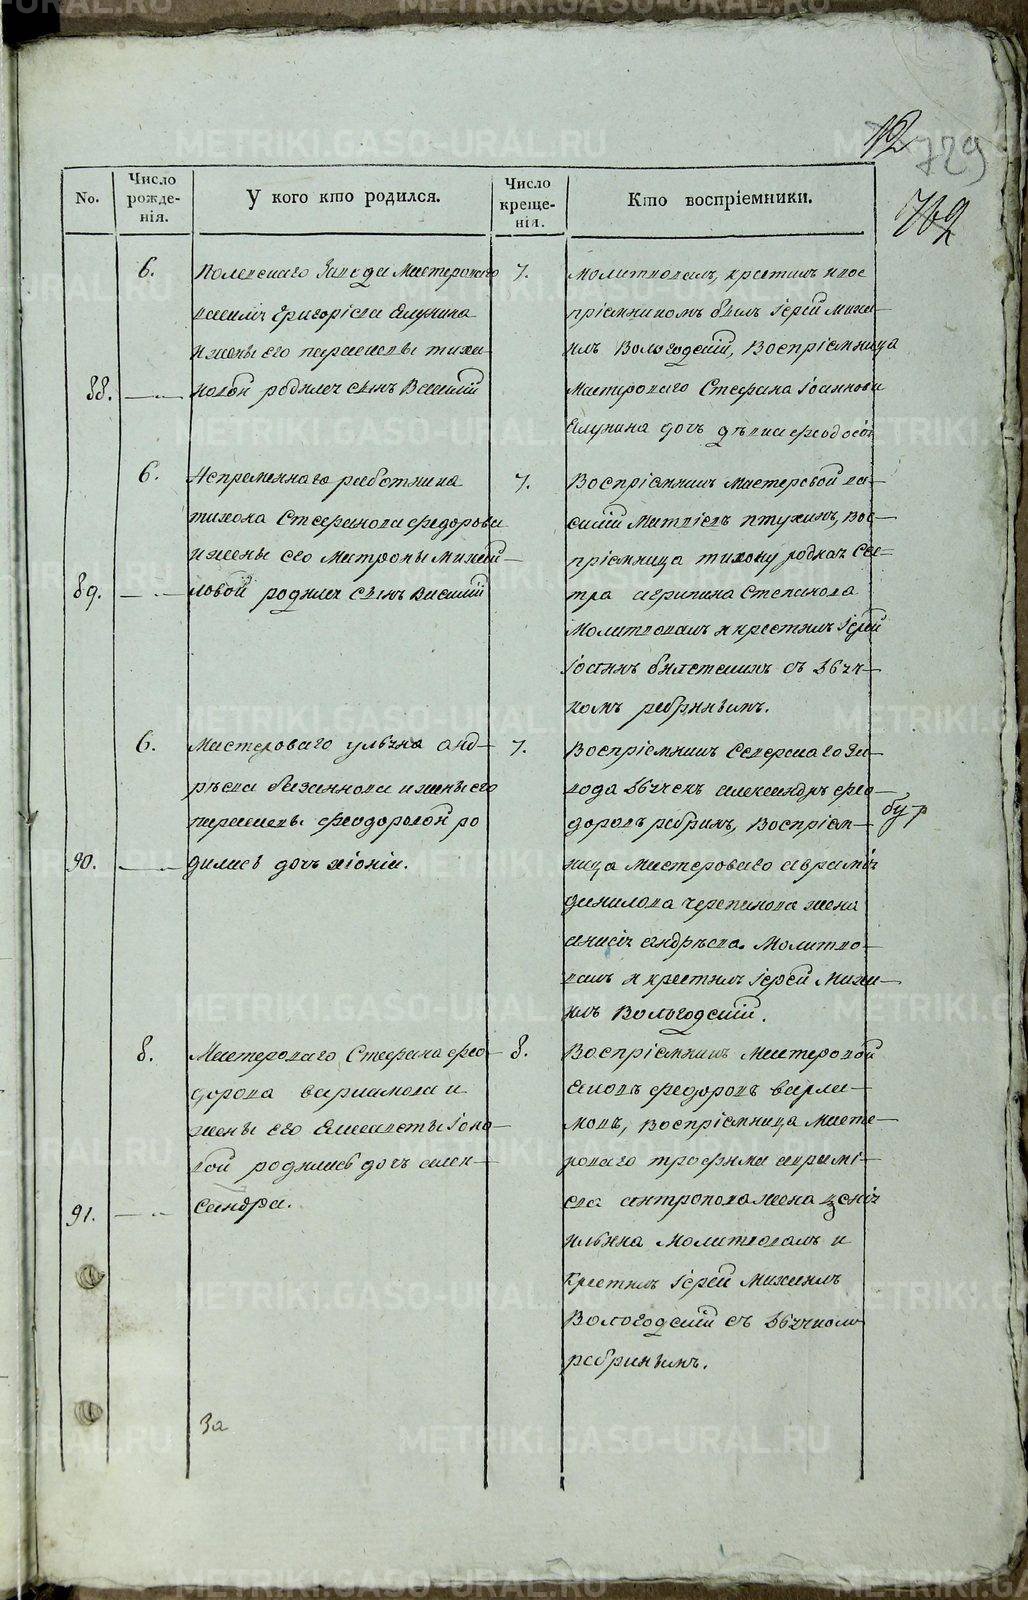 METRIKI.GASO-URAL.RU
12
729
762
No.
Число рожде-нія.
У кого кто родился.
Число креще-нія.
Кто воспріемники.
6.
Полевскаго Завода Мастероваго
Василія Григоріева Елунина
и жены его параскевы тихо
88.
новой родился сынъ Василій
7.
Молитвовалъ, крестилъ и вос
пріемникомъ былъ Іерей Миха
илъ Вологодскій, Воспріемница
Мастероваго Стефана Іоаннова
Елунина дочь дѣвка феодосія
6.
работника
тихона Стефанова федорова
и жены его Матроны Михай
89.
ловой родился сынъ Василій
7.
Воспріемникъ Мастеровой ва-
силій Матвѣевъ птухинъ, вос
пріемница тихону родная Сес-
тра агрипина Степанова
Молитвовалъ и крестилъ Іерей
Іоаннъ съ дьяч-
комъ ребринымъ.
6.
Мастероваго ульяна анд-
рѣева и жены его
параскевы феодоровой ро
90.
дилась дочь хіонія.
7.
Воспріемникъ Северскаго За-
вода дьячекъ александръ фео-
доровъ ребринъ, Воспріем-
ница Мастероваго аврамія
данилова черепанова жена
анисія андрѣева. Молитво-
валъ и крестилъ Іерей Миха
илъ Вологодскій.
8.
Мастероваго Стефана фео
дорова варламова и
жены его Елисаветы Іоно
вой родилась дочь алек-
91.
сандра.
8.
Воспріемникъ Мастеровой
федоровъ варла-
мовъ, воспріемница Масте-
роваго трофима
ева антропова жена ксенія
ильина Молитвовалъ и
Крестилъ Іерей Михаилъ
Вологодскій съ дьячкомъ
ребринымъ.
За